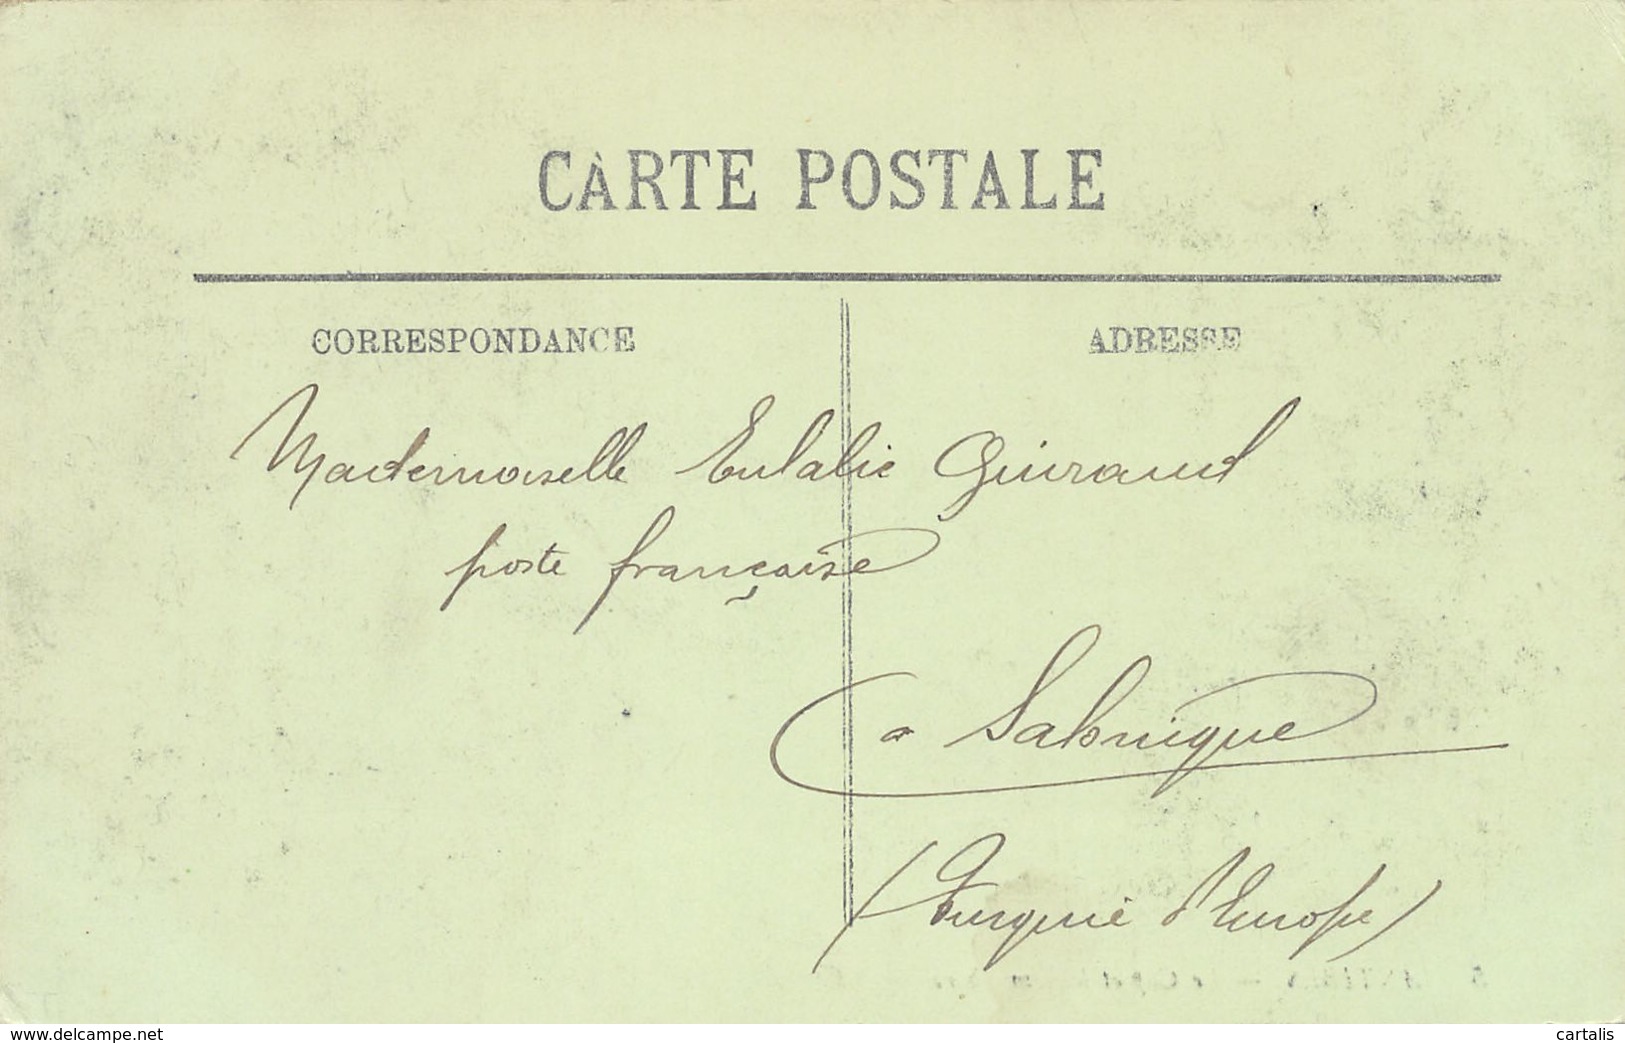 CARTE POSTALE
CORRESPONDANCE
ADRESSE
Mademoiselle Eulalie Guiraud
poste française
à Salonique
(Turquie d'Europe)
www.delcampe.net
cartalis